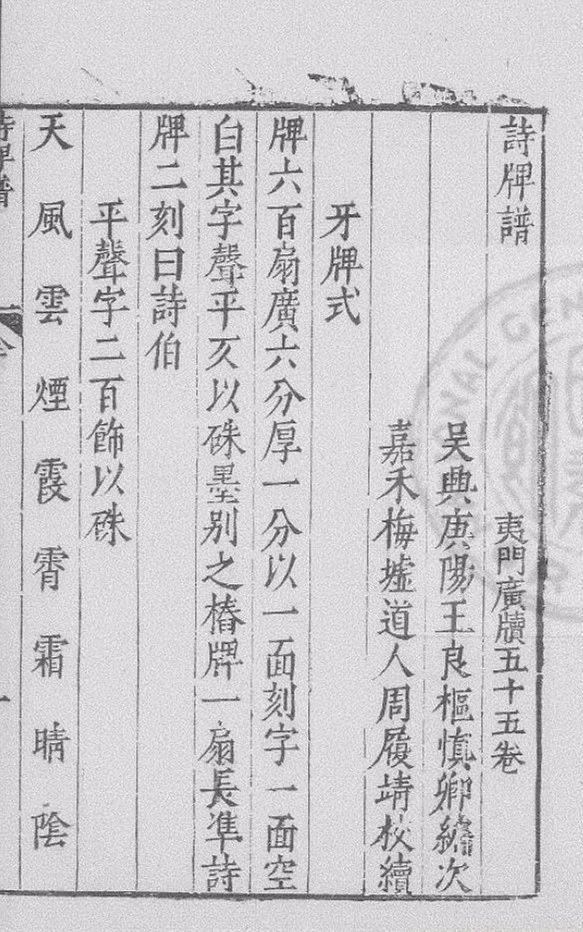 詩牌譜 夷門廣牘五十五卷
吳興庚陽王良樞慎卿編次
嘉禾梅墟道人周履靖校續
牙牌式
牌六百扇廣六分厚一分以一面刻字一面空
白其字聲平仄以硃墨别之樁牌一扇長準詩
牌二刻曰詩伯
平聲字二百飾以硃
天風雲煙霞霄霜晴陰
詩牌譜 一